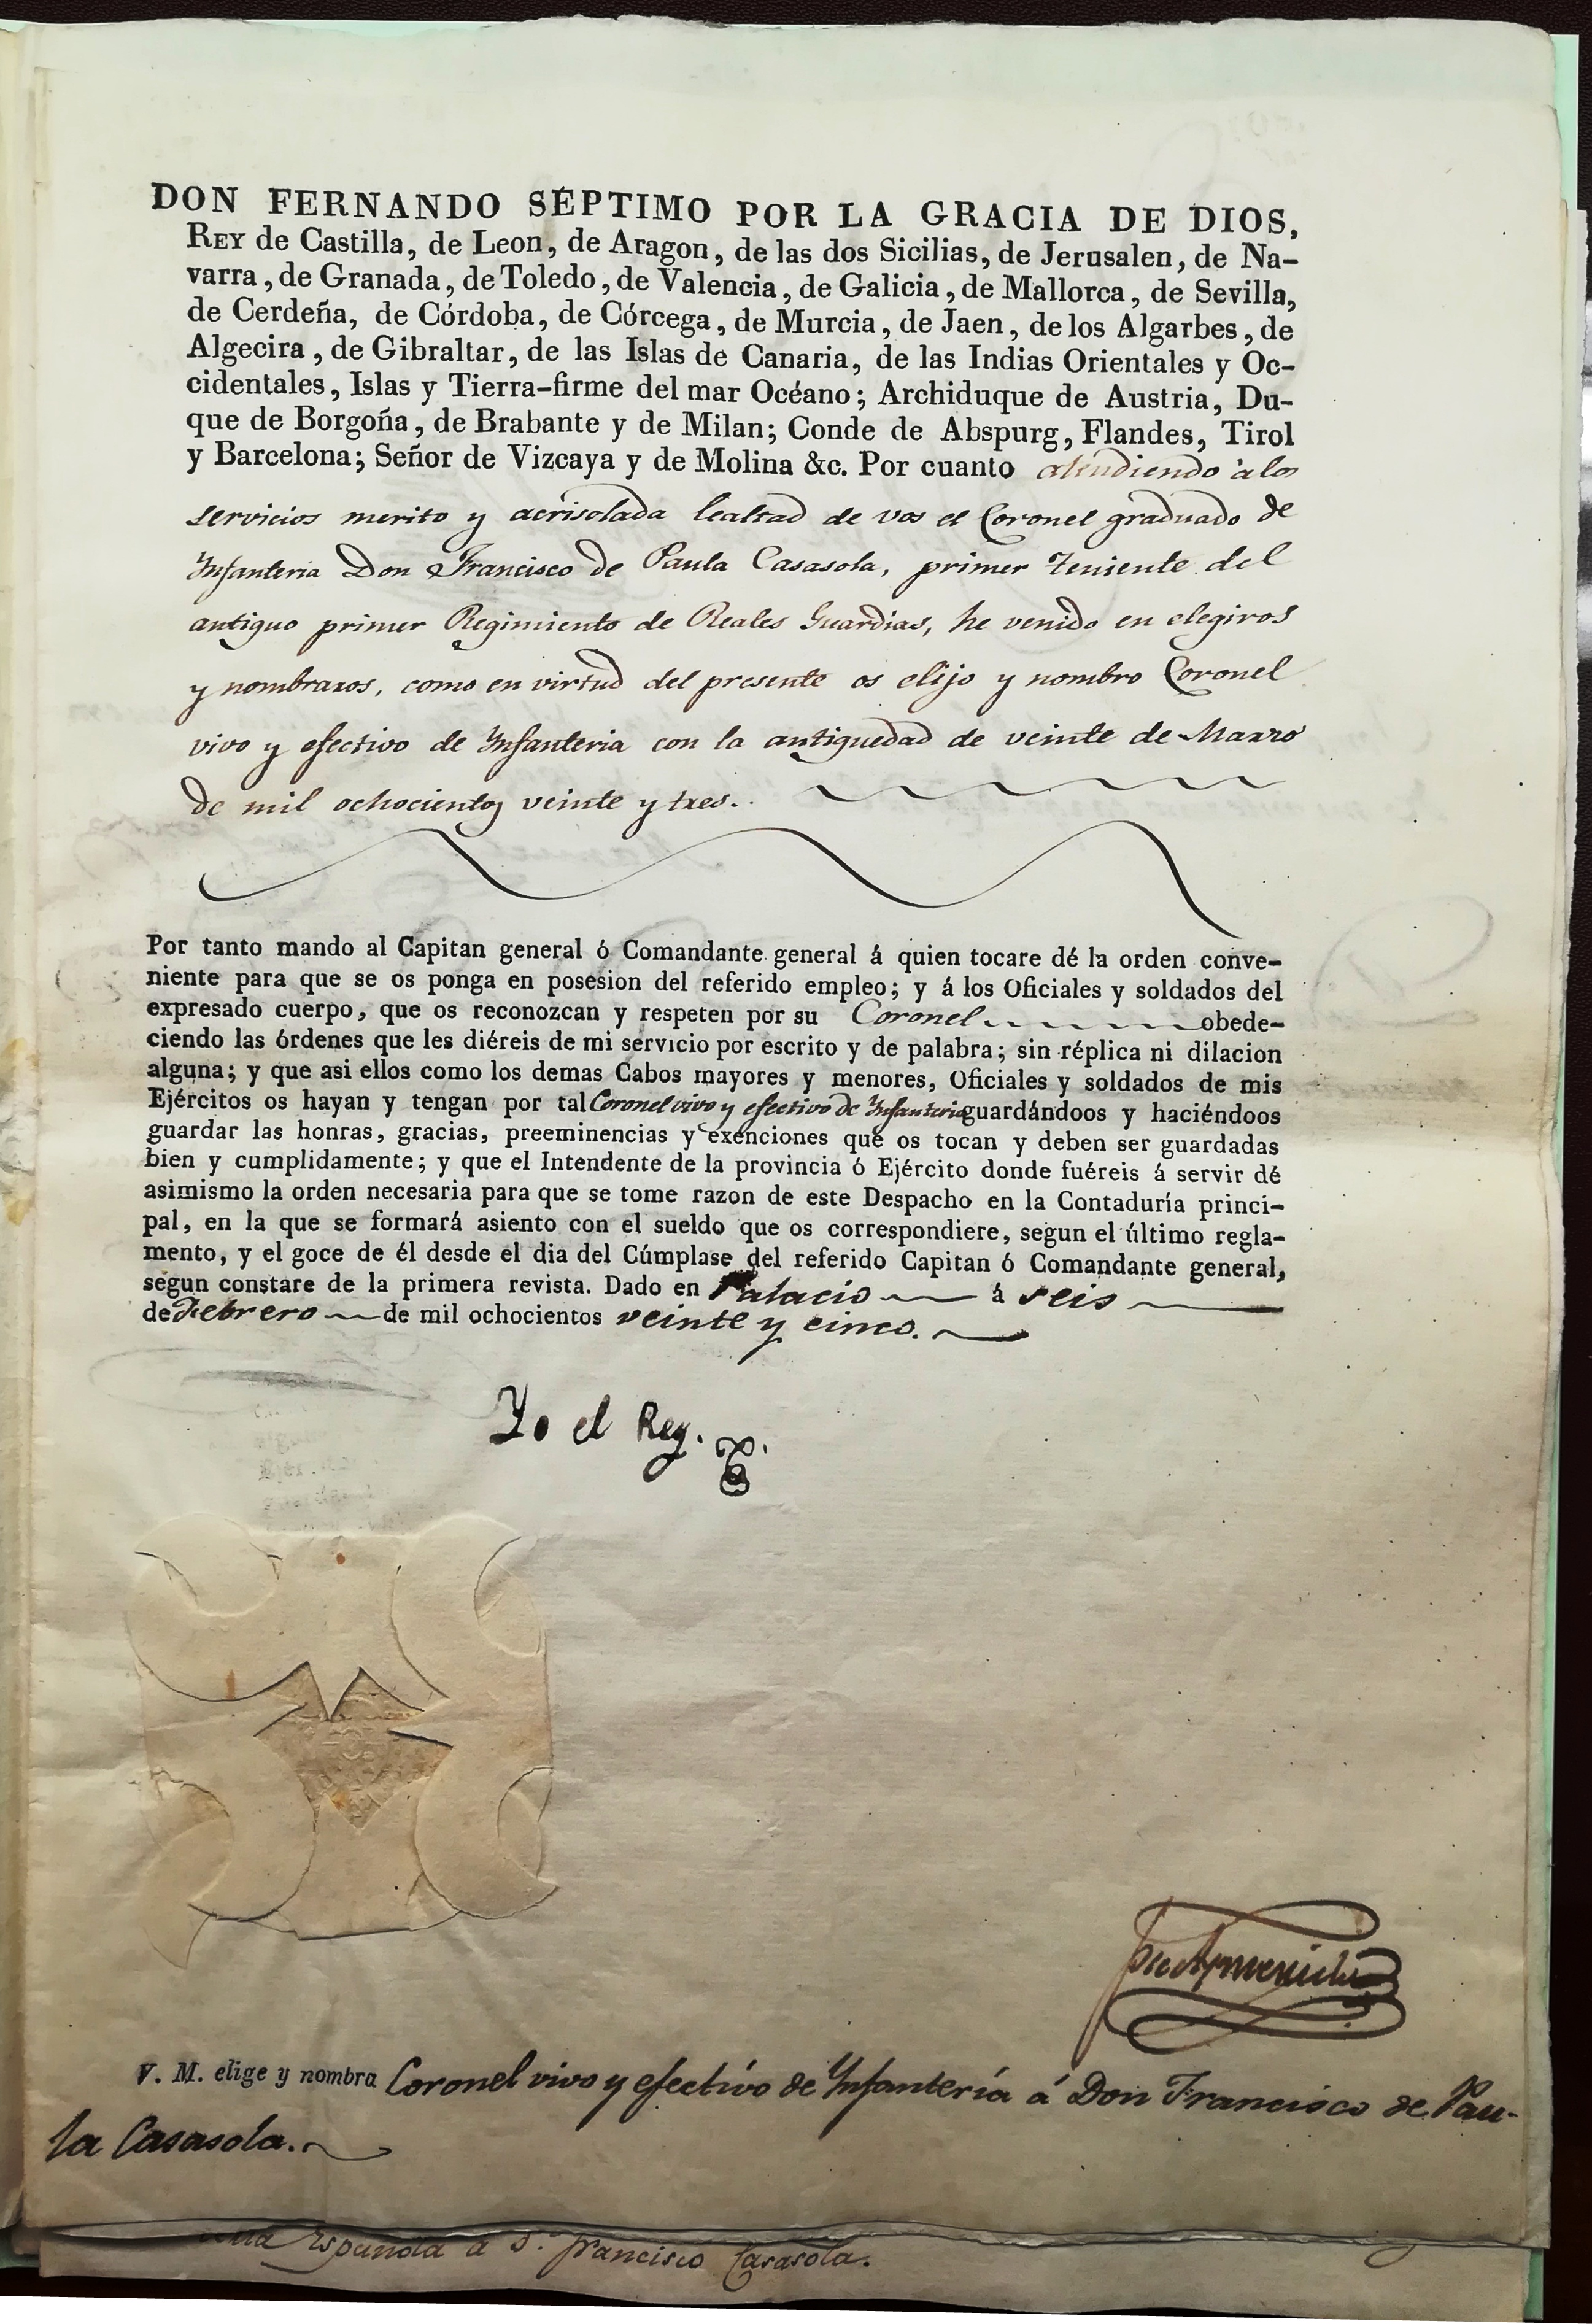 DON FERNANDO SÉPTIMO POR LA GRACIA DE DIOS,
REY de Castilla, de Leon, de Aragon, de las dos Sicilias, de Jerusalen, de Na-
varra, de Granada, de Toledo, de Valencia, de Galicia, de Mallorca, de Sevilla,
de Cerdeña, de Córdoba, de Córcega, de Murcia, de Jaen, de los Algarbes, de
Algecira, de Gibraltar, de las Islas de Canaria, de las Indias Orientales y Oc-
cidentales, Islas y Tierra-firme del mar Océano; Archiduque de Austria, Du-
que de Borgoña, de Brabante y de Milan; Conde de Abspurg, Flandes, Tirol
y Barcelona; Señor de Vizcaya y de Molina &c. Por cuanto atendiendo á los
servicios merito y acrisolada lealtad de vos el Coronel graduado de
Infanteria Don Francisco de Paula Casasola, primer Teniente del
antiguo primer Regimiento de Reales Guardias, he venido en elegiros
y nombraros, como en virtud del presente os elijo y nombro Coronel
vivo y efectivo de Infanteria con la antiguedad de veinte de Marzo
de mil ochocientos veinte y tres.
Por tanto mando al Capitan general ó Comandante general á quien tocare dé la orden conve-
niente para que se os ponga en posesion del referido empleo; y á los Oficiales y soldados del
expresado cuerpo, que os reconozcan y respeten por su Coronel obede-
ciendo las órdenes que les diéreis de mi servicio por escrito y de palabra; sin réplica ni dilacion
alguna; y que asi ellos como los demas Cabos mayores y menores, Oficiales y soldados de mis
Ejércitos os hayan y tengan por tal Coronel vivo y efectivo de Infanteria guardándoos y haciéndoos
guardar las honras, gracias, preeminencias y exenciones que os tocan y deben ser guardadas
bien y cumplidamente; y que el Intendente de la provincia ó Ejército donde fuéreis á servir dé
asimismo la orden necesaria para que se tome razon de este Despacho en la Contaduría princi-
pal, en la que se formará asiento con el sueldo que os correspondiere, segun el último regla-
mento, y el goce de él desde el dia del Cúmplase del referido Capitan ó Comandante general,
segun constare de la primera revista. Dado en Palacio á seis
de Febrero de mil ochocientos veinte y cinco.
Yo el Rey.
V. M. elige y nombra Coronel vivo y efectivo de Infantería á Don Francisco de Pau-
la Casasola.
Española a D. Francisco Casasola.